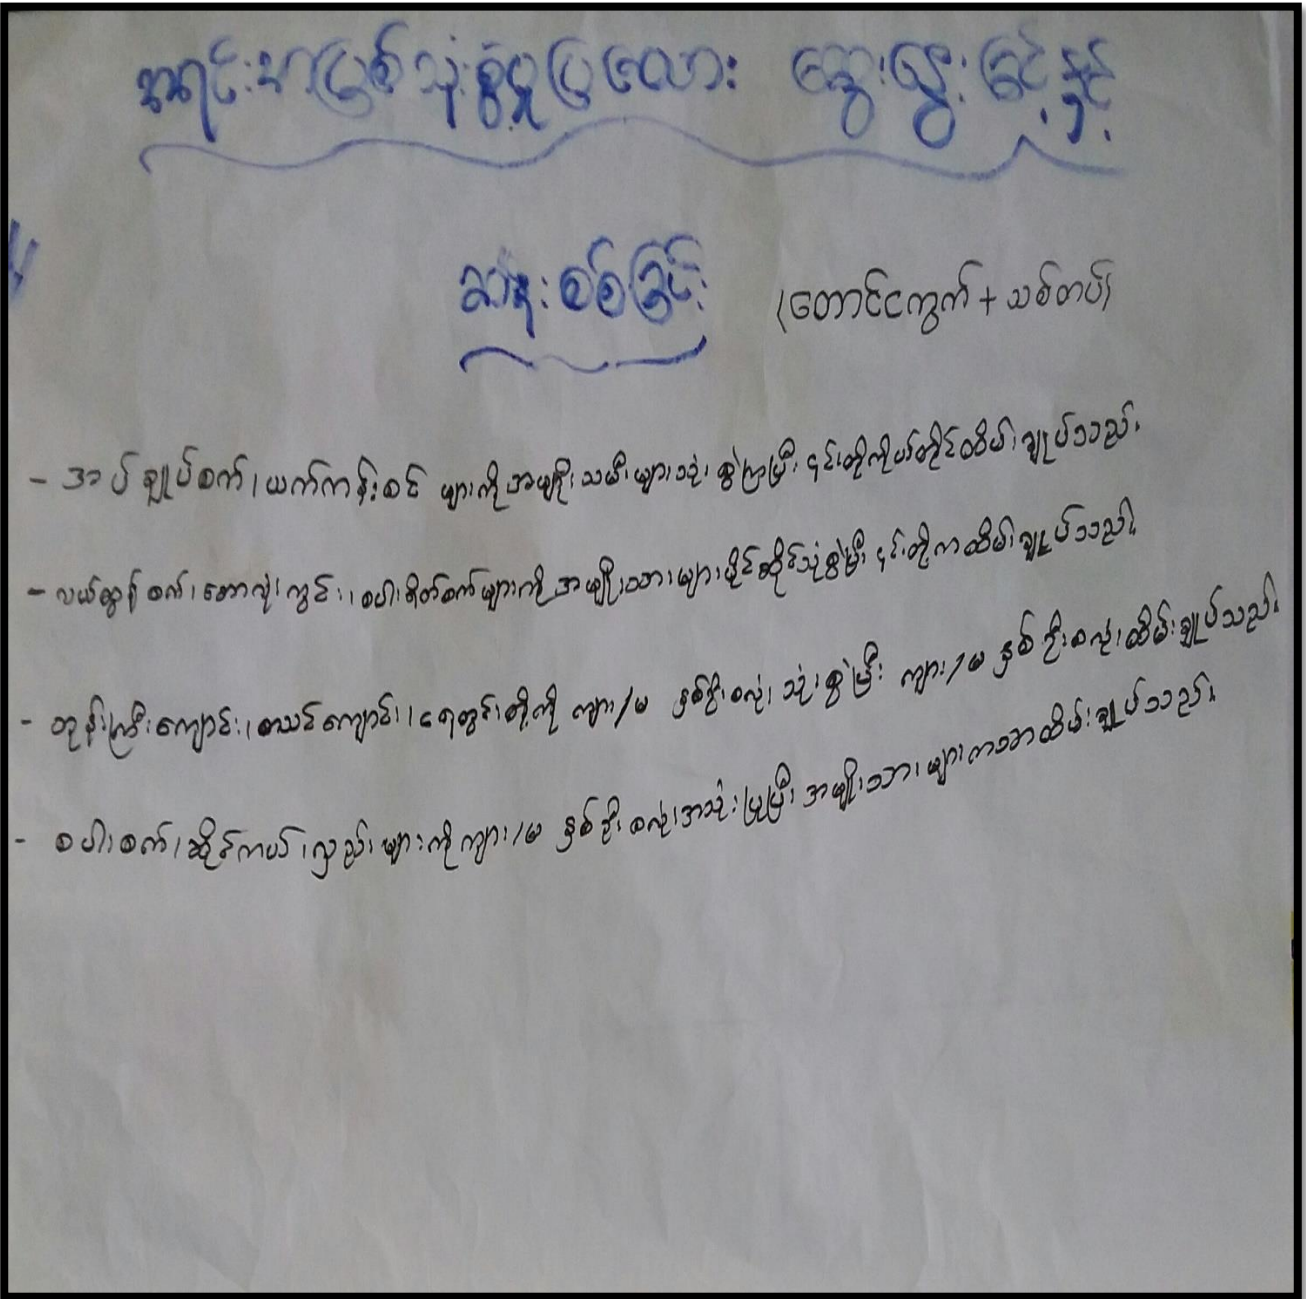 အရင်းအမြစ်သုံးစွဲမှုပြဇယား ဆွေးနွေးခြင်းနှင့်
ဆန်းစစ်ခြင်း (တောင်ငကွက် + သစ်တပ်)
- အပ်ချုပ်စက်၊ ယက်ကန်းစင် များကို အမျိုးသမီးများသုံးစွဲကြပြီး ၎င်းတို့ကိုယ်တိုင်ထိမ်းချုပ်သည်။
- လယ်ထွန်စက်၊ ဘောလုံးကွင်း၊ စပါးရိတ်စက်များကို အမျိုးသားများပိုင်ဆိုင်သုံးစွဲပြီး ၎င်းတို့ကထိမ်းချုပ်သည်။
- ဘုန်းကြီးကျောင်း၊ စာသင်ကျောင်း၊ ရေတွင်းတို့ကို ကျား/မ နှစ်ဦးစလုံး သုံးစွဲပြီး ကျား/မ နှစ်ဦးစလုံးထိမ်းချုပ်သည်။
- စပါးစက်၊ ဆိုင်ကယ်၊ လှည်းများကို ကျား/မ နှစ်ဦးစလုံးအသုံးပြုပြီး အမျိုးသားများကသာထိမ်းချုပ်သည်။